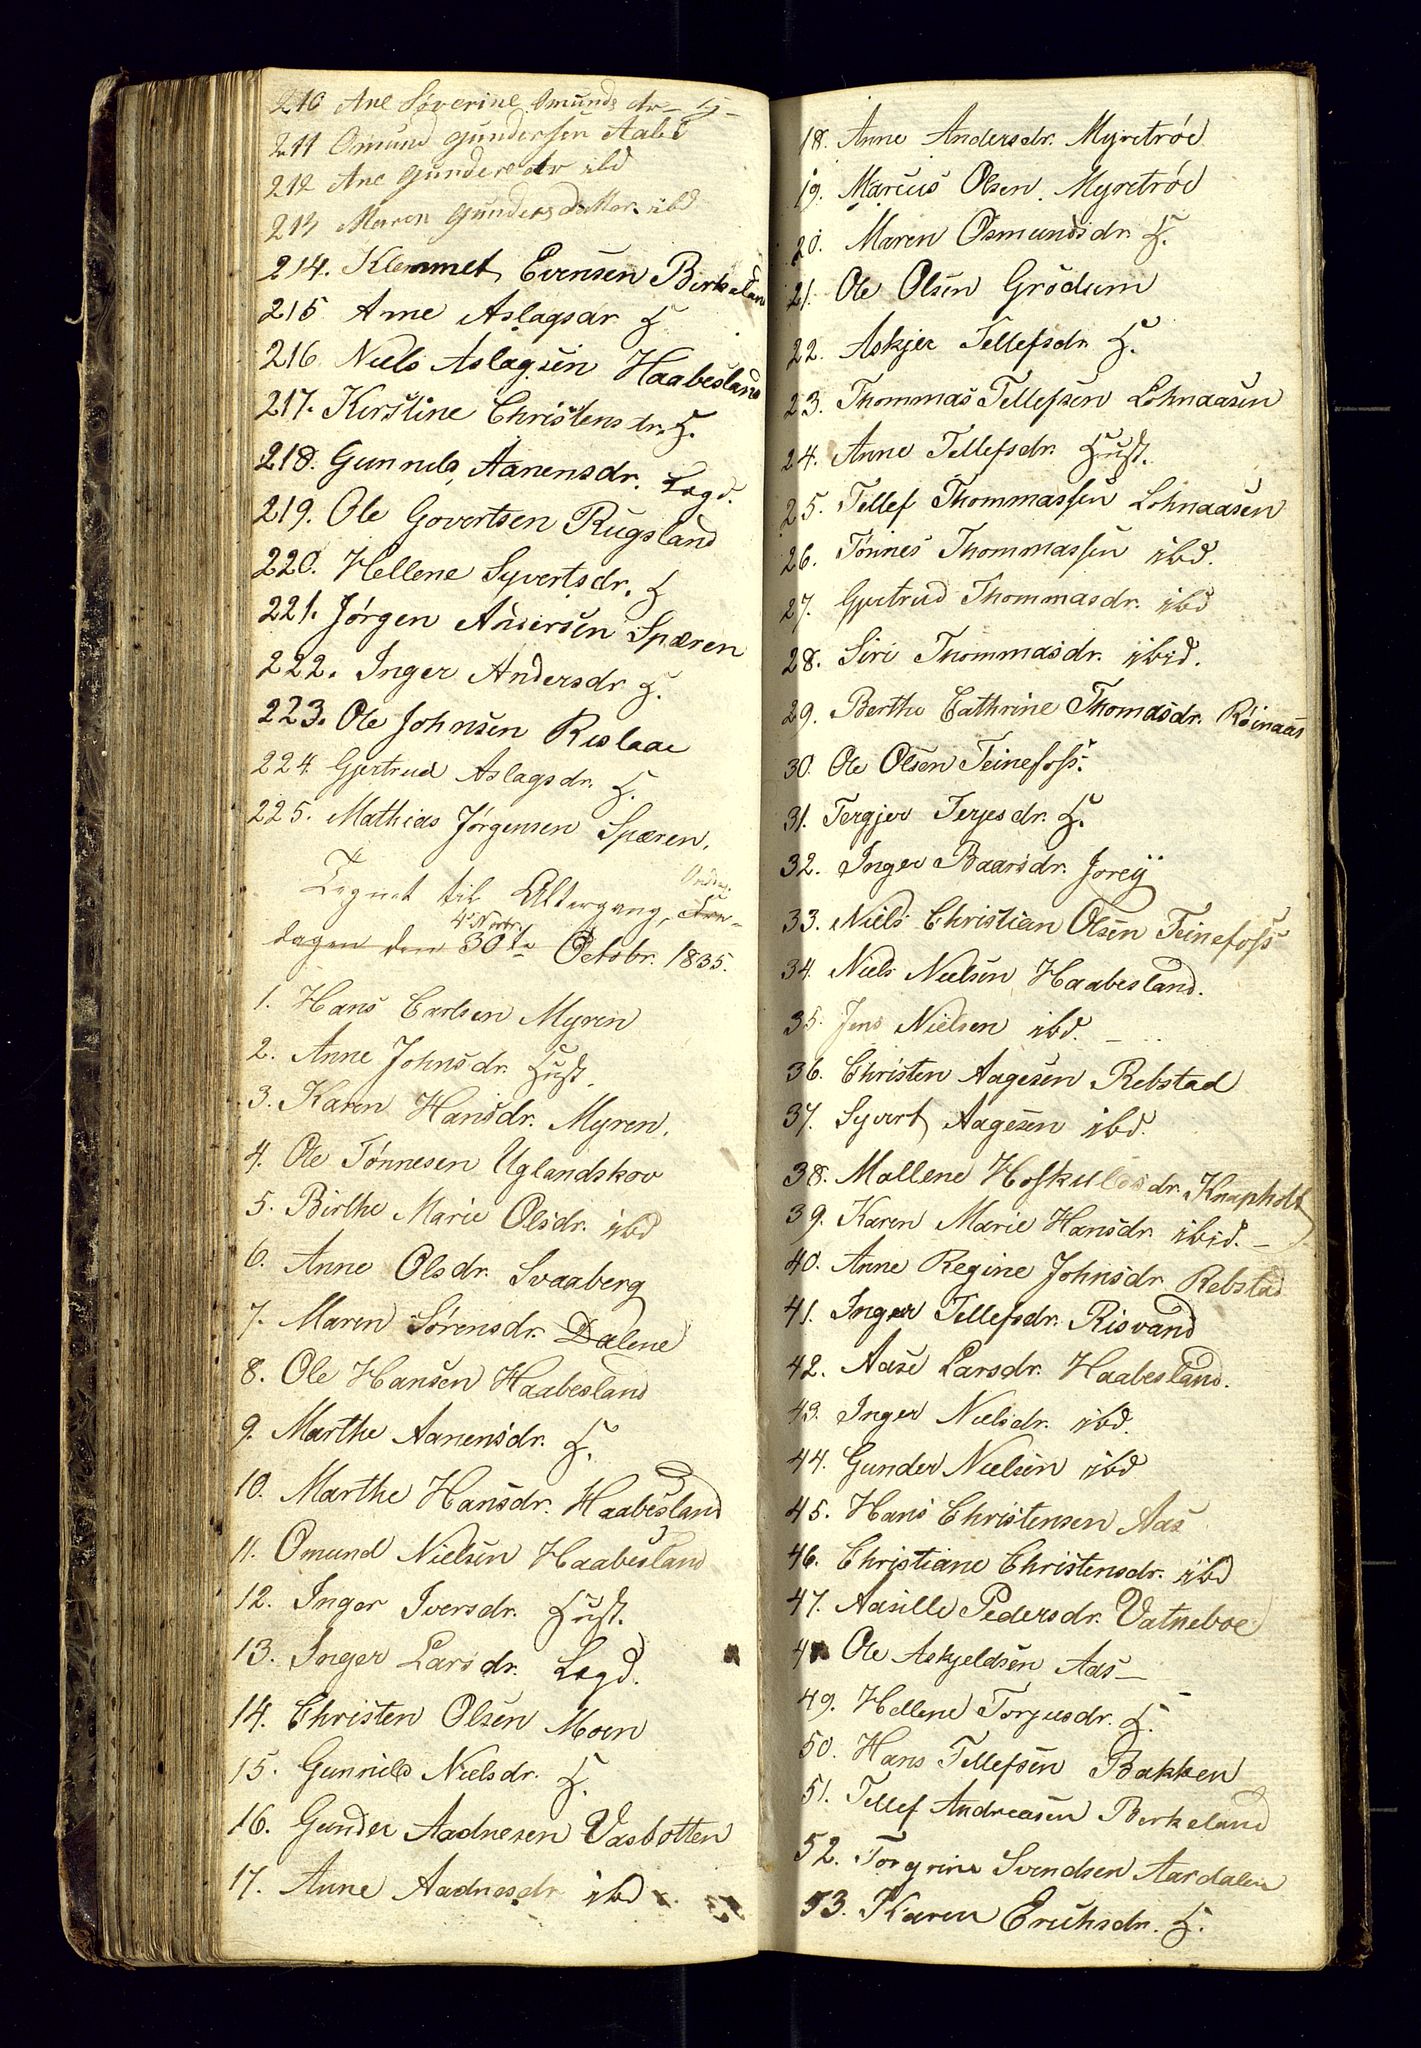 210 Ane Severine Omunds dr H
211 Omund Gundersen Aabel
212 Ane Gundersdr ibd
213 Maren Gundersdatter ibd
214. Klemmet Evensen Birkeland
215 Anne Aslagsdr H
216 Niels Aslagsen Haabesland
217. Kirstine Christensdr. H.
218. Gunnild Aanensdr. Legd.
219. Ole Govertsen Rugsland
220. Hellene Syvertsdr. H
221. Jørgen Andersen Spæren
222. Inger Andersdr H.
223. Ole Johnsen Rislaae
224. Gjertrud Aslagsdr. H.
225. Mathias Jørgensen Spæren.
Tegnet til Altergang,
dagen den 30te 4de Novbr Octobr. 1835.
1. Hans Carlsen Myren
2. Anne Johnsdr. Hust.
3. Karen Hansdr. Myren.
4. Ole Tønnesen Uglandskov
5. Birthe Marie Olsdr. ibd
6. Anne Olsdr. Svaaberg
7. Maren Sørensdr. Dalene
8. Ole Hansen Haabesland
9. Marthe Aanensdr. H.
10. Marthe Hansdr. Haabesland
11. Omund Nielsen Haabesland
12. Inger Iversdr. Hust.
13. Inger Larsdr. Legd.
14. Christen Olsen Moen
15. Gunnild Nielsdr. H.
16. Gunder Aadnesen Vasbotten
17. Anne Aadnesdr ibd
18. Anne Andersdr. Myretrøe
19. Marcus Olsen Myretrøe
20. Maren Osmundsdr. H.
21. Ole Olsen Grødum
22. Askjer Tellefsdr. H.
23. Thommas Tellefsen Lohnaasen
24. Anne Tellefsdr. Hust.
25. Tellef Thommassen Lohnaasen
26. Tønnes Thommassen ibd.
27. Gjertrud Thommasdr. ibd
28. Siri Thommasdr. ibid.
29. Berthe Cathrine Thomasdr. Röinaas
30. Ole Olsen Teinefoss.
31. Tergjer Terjesdr. H.
32. Inger Baarsdr. Jorey
33. Niels Christian Olsen Teinefoss
34. Niels Nielsen Haabesland.
35. Jens Nielsen ibd.
36. Christen Aagesen Rebstad
37. Syvert Aagesen ibd.
38. Mallene Hoskuldsdr. Knapholt
39. Karen Marie Hansdr. ibid.
40. Anne Regine Johnsdr Rebstad
41. Inger Tellefsdr. Risvand
42. Aase Larsdr. Haabesland.
43. Inger Nielsdr. ibd.
44. Gunder Nielsen ibd
45. Hans Christensen Aas
46. Christiane Christensdr. ibd
47. Aasille Pedersdr. Vatneboe
48 Ole Askjeldsen Aas
49. Hellene Torjusdr. H.
50. Hans Tellefsen Bakken
51. Tellef Andreasen Birkeland
52. Torgrim Svendsen Aardalen
53. Karen Erichsdr. H.